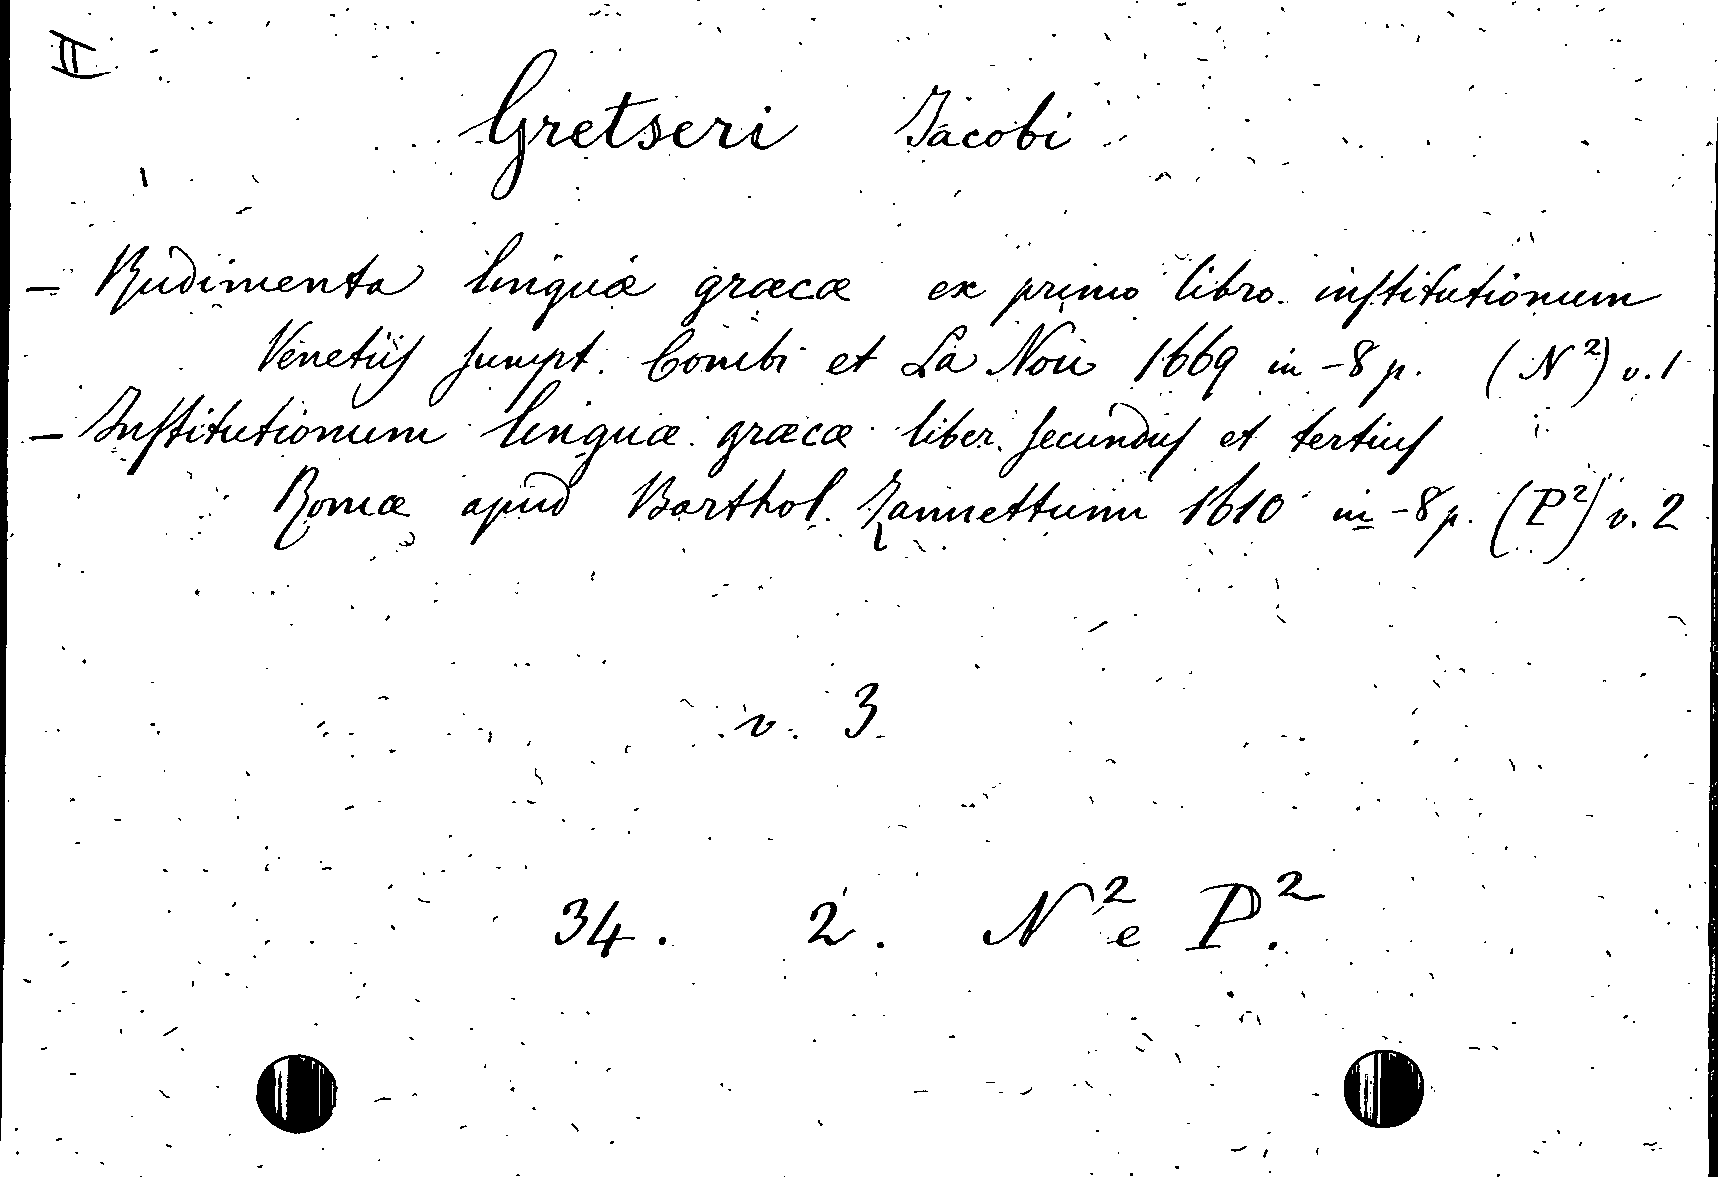 II
Gretseri Jacobi
- Rudimenta linguæ græcæ ex primo libro institutionum
Venetiis sumpt. Combi et La Noù 1669 in-8 p. (N²) v. 1
- Institutionum linguæ græcæ liber secundus et tertius
Romæ apud Barthol. Zannettum 1610 in-8 p. (P²) v. 2
v. 3
34. 2. N² e P².